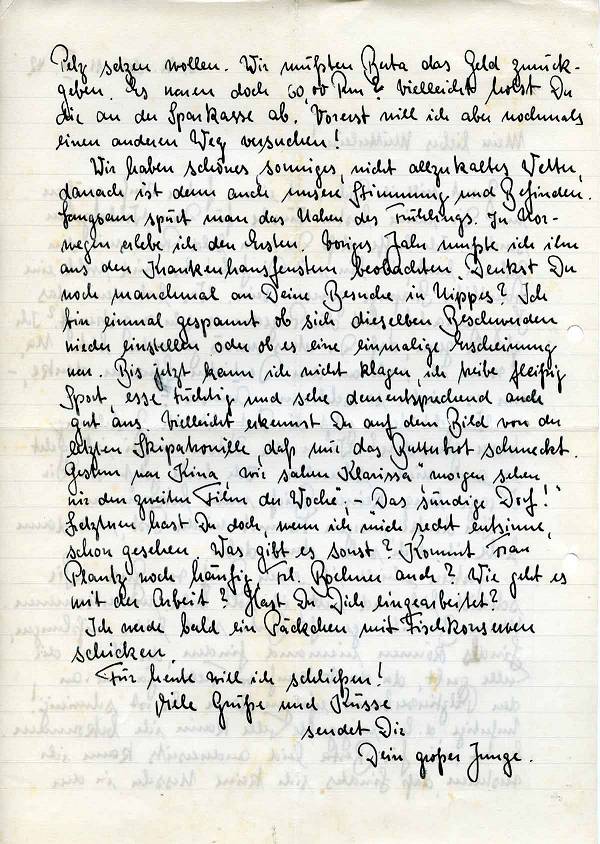 Pelz setzen wollen. Wir müßten Berta das Geld zurück-
geben. Es waren doch 60,00 Rm? Vielleicht holst Du
sie an der Sparkasse ab. Vorerst will ich aber nochmals
einen anderen Weg versuchen!
Wir haben schönes sonniges, nicht allzukaltes Wetter,
danach ist denn auch unsere Stimmung und Befinden.
Langsam spürt man das Nahen des Frühlings. In Nor-
wegen erlebe ich den Ersten. Voriges Jahr mußte ich ihn
aus den Krankenhausfenstern beobachten. Denkst Du
noch manchmal an Deine Besuche in Nippes? Ich
bin einmal gespannt ob sich dieselben Beschwerden
wieder einstellen oder ob es eine einmalige Erscheinung
war. Bis jetzt kann ich nicht klagen, ich treibe fleißig
Sport, esse tüchtig und sehe dementsprechend auch
gut aus. Vielleicht erkennst Du auf dem Bild von der
letzten Skipatrouille, daß mir das Butterbrot schmeckt.
Gestern war Kino, wir sahen „Klarissa" morgen sehen
wir den zweiten Film der Woche, – „Das sündige Dorf!"
Letzteren hast Du doch, wenn ich mich recht entsinne,
schon gesehen. Was gibt es sonst? Kommt Frau
Plantz noch häufig, Frl. Bochner auch? Wie geht es
mit der Arbeit? Hast Du Dich eingearbeitet?
Ich werde bald ein Päckchen mit Fischkonserven
schicken.
Für heute will ich schließen!
Viele Grüße und Küsse
sendet Dir
Dein großer Junge.